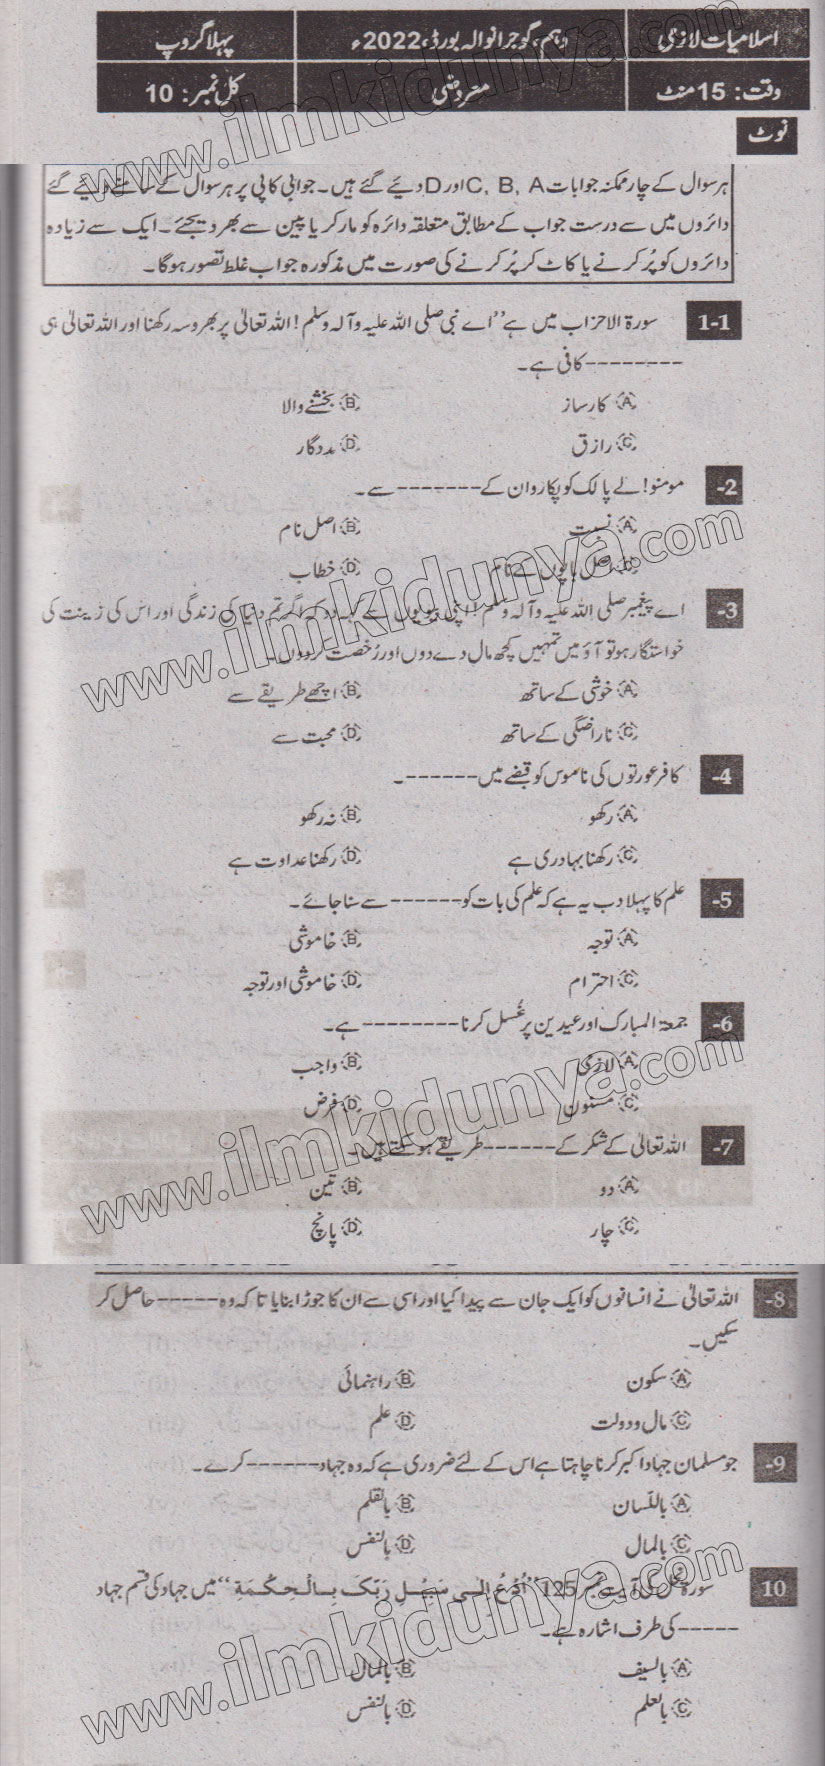 اسلامیات لازمی
دہم، گوجرانوالہ بورڈ، 2022ء
پہلا گروپ
وقت: 15 منٹ
معروضی
کل نمبر: 10
نوٹ
ہر سوال کے چار ممکنہ جوابات C, B, A اور D دیئے گئے ہیں۔ جوابی کاپی پر ہر سوال کے سامنے دیئے گئے
دائروں میں سے درست جواب کے مطابق متعلقہ دائرہ کو مارکر یا پین سے بھر دیجئے۔ ایک سے زیادہ
دائروں کو پُر کرنے یا کاٹ کر پُر کرنے کی صورت میں مذکورہ جواب غلط تصور ہوگا۔
1-1 سورۃ الاحزاب میں ہے ’’اے نبی صلی اللہ علیہ وآلہ وسلم! اللہ تعالیٰ پر بھروسہ رکھنا اور اللہ تعالیٰ ہی
-------- کافی ہے۔
(A) کارساز (B) بخشنے والا
(C) رازق (D) مددگار
2- مومنو! لے پالک کو پکارو ان کے ------- سے۔
(A) نسبت (B) اصل نام
(C) اصل باپوں کے نام (D) خطاب
3- اے پیغمبر صلی اللہ علیہ وآلہ وسلم! اپنی بیویوں سے کہہ دو کہ اگر تم دنیا کی زندگی اور اس کی زینت کی
خواستگار ہو تو آؤ میں تمہیں کچھ مال دے دوں اور رُخصت کر دوں۔
(A) خوشی کے ساتھ (B) اچھے طریقے سے
(C) ناراضگی کے ساتھ (D) محبت سے
4- کافر عورتوں کی ناموس کو قبضے میں ------۔
(A) رکھو (B) نہ رکھو
(C) رکھنا بہادری ہے (D) رکھنا عداوت ہے
5- علم کا پہلا دب یہ ہے کہ علم کی بات کو ------ سے سنا جائے۔
(A) توجہ (B) خاموشی
(C) احترام (D) خاموشی اور توجہ
6- جمعۃ المبارک اور عیدین پر غُسل کرنا -------- ہے۔
(A) لازمی (B) واجب
(C) مسنون (D) فرض
7- اللہ تعالیٰ کے شکر کے ------ طریقے ہو سکتے ہیں۔
(A) دو (B) تین
(C) چار (D) پانچ
8- اللہ تعالیٰ نے انسانوں کو ایک جان سے پیدا کیا اور اسی سے ان کا جوڑا بنایا تاکہ وہ ----- حاصل کر
سکیں۔
(A) سکون (B) راہنمائی
(C) مال و دولت (D) علم
9- جو مسلمان جہاد اکبر کرنا چاہتا ہے اس کے لئے ضروری ہے کہ وہ جہاد ------ کرے۔
(A) باللسان (B) بالقلم
(C) بالمال (D) بالنفس
10 سورۃ نحل کی آیت نمبر 125 ’’اُدْعُ اِلٰی سَبِیْلِ رَبِّکَ بِالْحِکْمَۃِ‘‘ میں جہاد کی قسم جہاد
----- کی طرف اشارہ ہے۔
(A) بالسیف (B) بالمال
(C) بالعلم (D) بالنفس
www.ilmkidunya.com
www.ilmkidunya.com
www.ilmkidunya.com
www.ilmkidunya.com